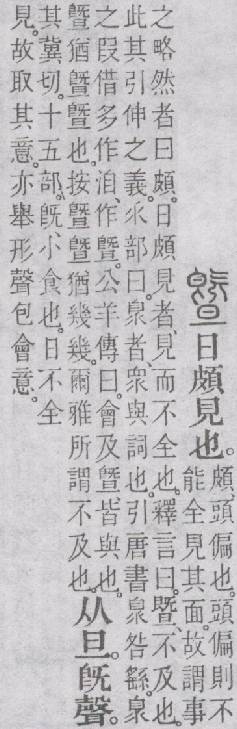 曁日頗見也。
頗、頭偏也。頭偏則不
能全見其面。故謂事
之略然者曰頗。日頗見者、見而不全也。釋言曰。曁、不及也。
此其引伸之義。㐺部曰。臮者、衆與詞也。引唐書臮咎繇。臮
之叚借多作洎、作曁。公羊傳曰。會及曁、皆與也。
曁猶曁曁也。按曁曁猶幾幾。爾雅所謂不及也。
从旦。旣聲。
其冀切。十五部。旣、小食也。日不全
見。故取其意。亦舉形聲包會意。